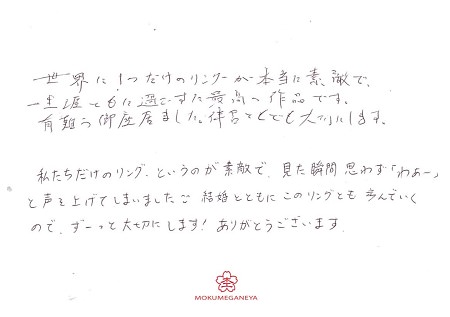 世界に1つだけのリングが本当に素敵で、
一生涯ともに過ごすため最高の作品です。
有難う御座居ました。
私たちだけのリング、というのが素敵で、見た瞬間思わず「わぁー」
と声を上げてしまいました 結婚とともにこのリングとも歩んでいく
ので、ずーっと大切にします！ありがとうございます。
MOKUMEGANEYA